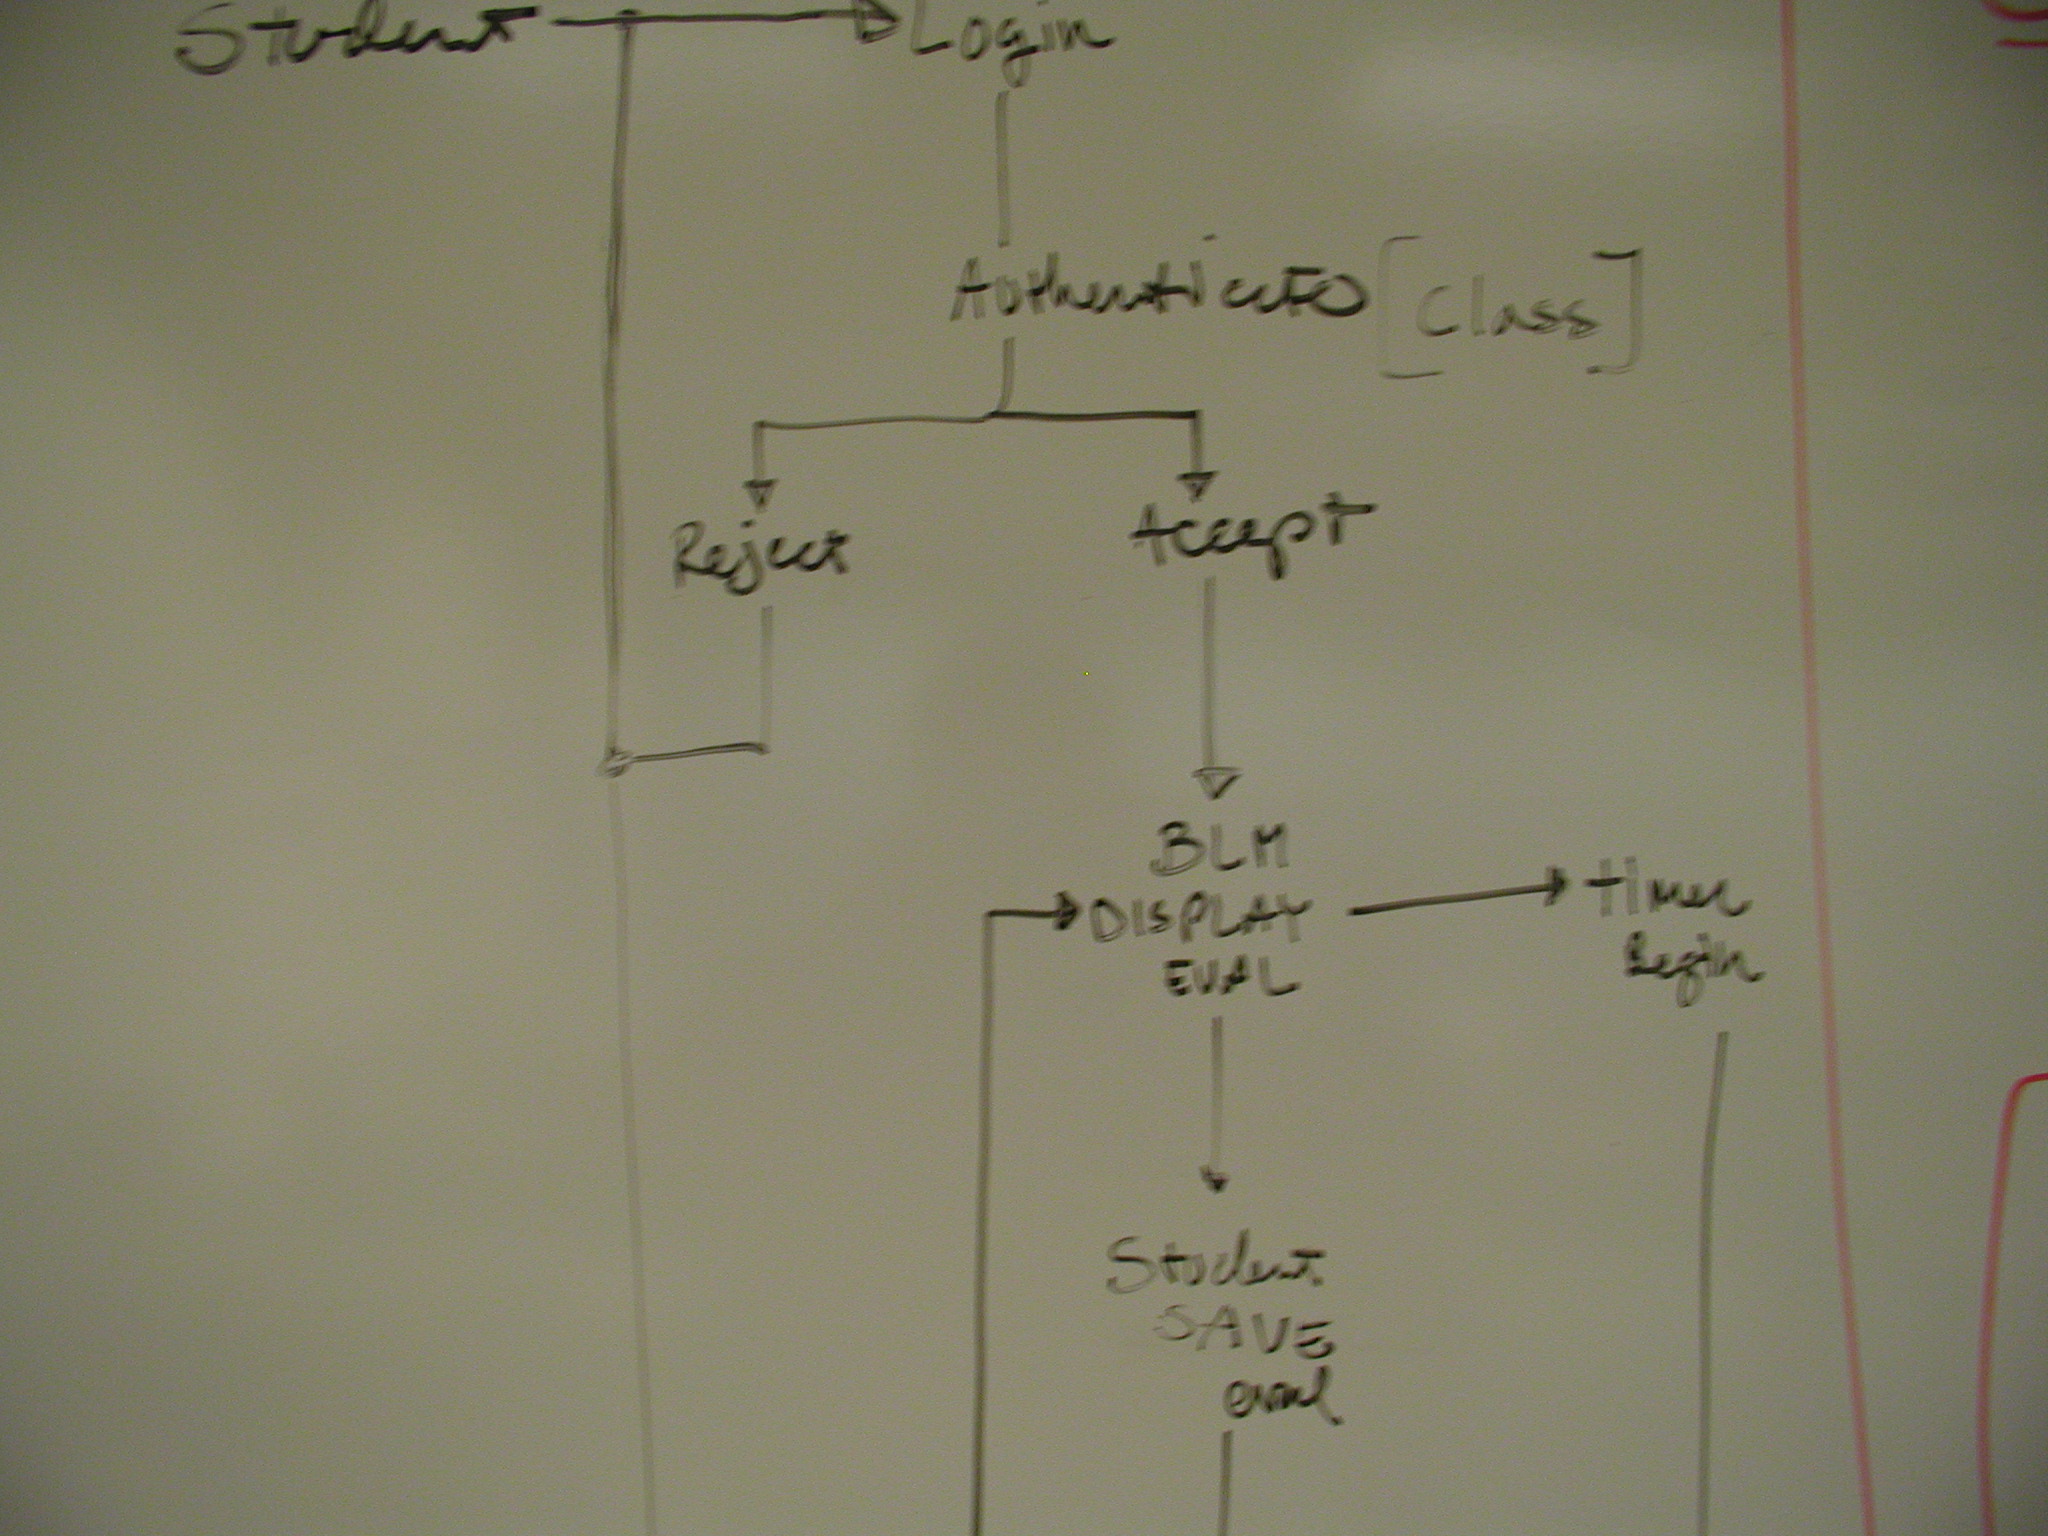 Student Login
Authenticate [Class]
Reject Accept
BLM
DISPLAY
EVAL
timer
Begin
Student
SAVE
eval